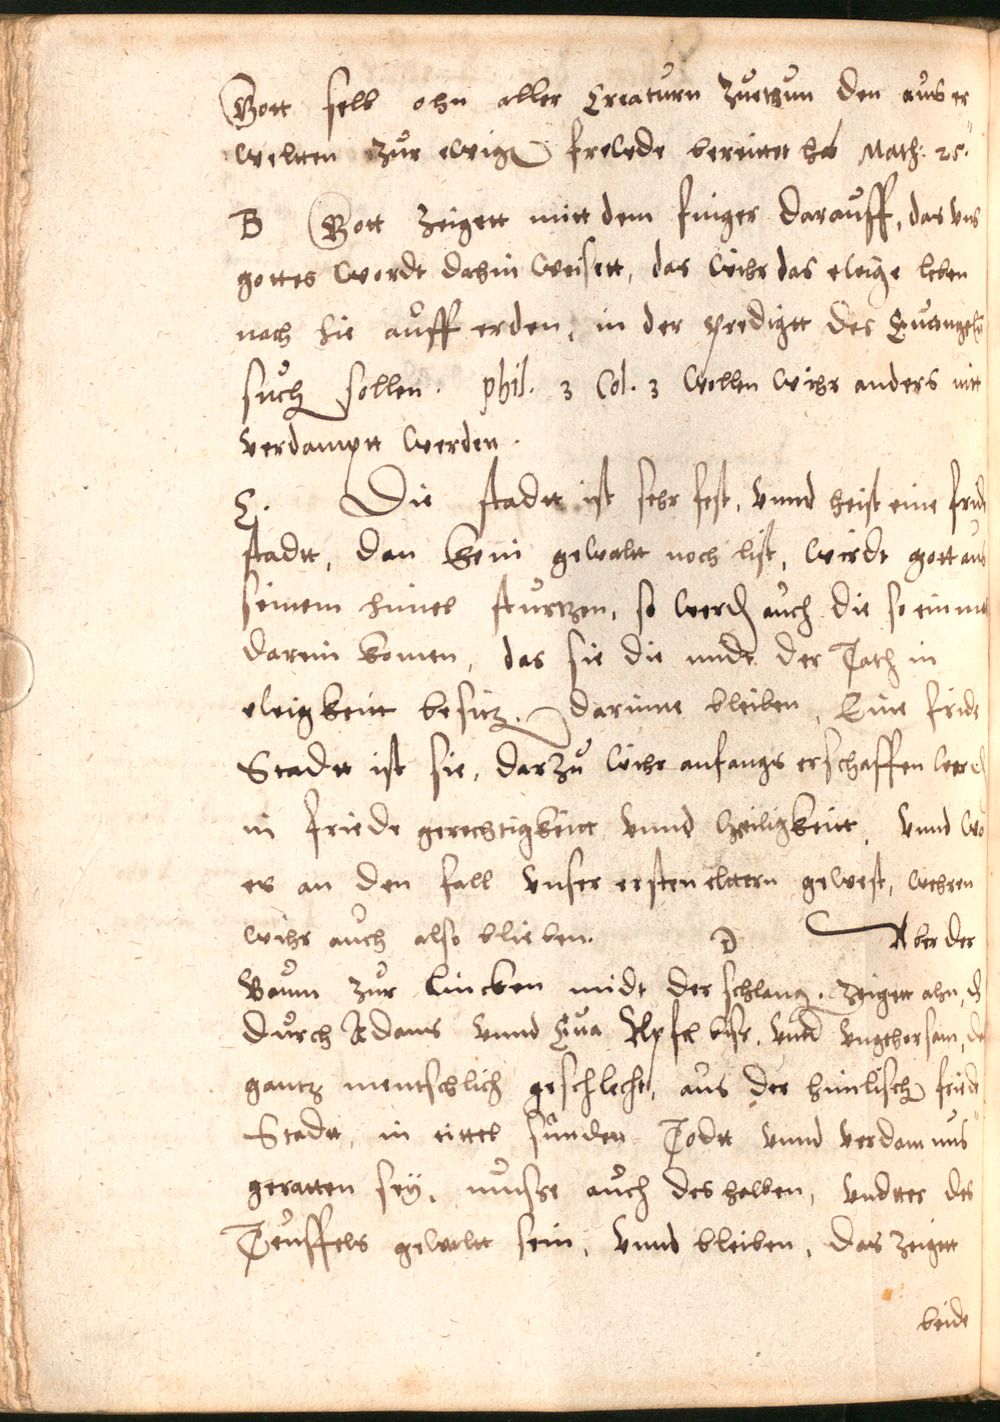 Gott selb ohn aller Creaturn zuethun den auser
welten zur ewigen frewde bereitet hat Math: 25.
B Gott zeigett mitt dem finger darauff, das vns
gottes wordt dahin weisett, das wihr das ewige leben
noch hie auff erden, in der predigtt des Euangelij
suchen sollen. phil. 3 Col. 3 wollen wihr anders nitt
verdamptt werden.
C. Die stadtt ist sehr fest, vnnd heist eine fride
stadtt, dan kein gewaltt noch list, wirdt gott aus
seinem himel sturtzen, so werden auch die so ein mal
darein komen, das sie die nidt der Tath in
ewigkeitt besitzen. darinne bleiben, Eine fride
Stadtt ist sie, darzu wihr anfangs erschaffen werden
in friede gerechtigkeitt vnnd heiligkeitt, vnnd wo
es an den fall vnser ersten elttern gewest, wehren
wihr auch also blieben. D Aber der
Baum zur lincken midt der schlangen. zeigett ahn, das
durch Adams vnnd Eua Apfel biss, vnd vngehorsam, das
gantz mentschlich geschlecht, aus der himlischen friede
Stadtt, in eittel sünden Todtt vnnd verdamnus
geratten sey, musse auch deshalben, vndter des
Teuffels gewaltt sein, vnnd bleiben, das zeigett
beide